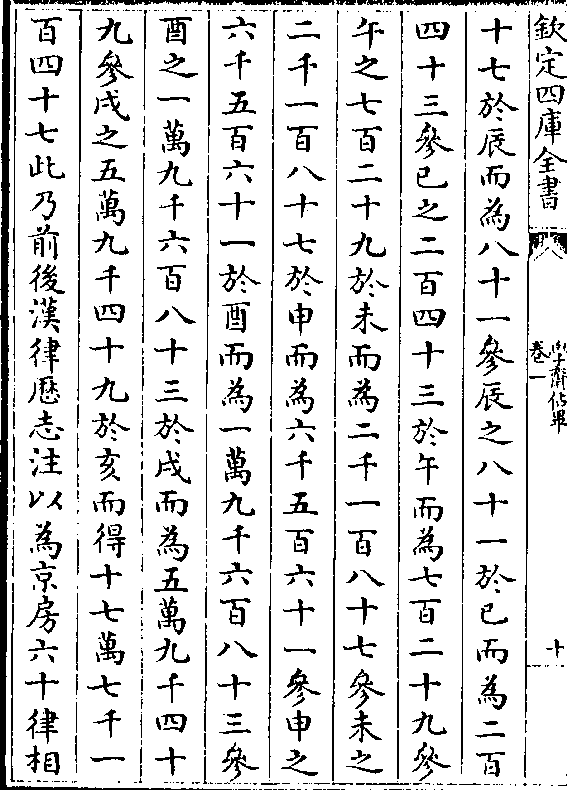 欽定四庫全書
學齋佔畢
卷一
十
十七於辰而為八十一參辰之八十一於巳而為二百
四十三參巳之二百四十三於午而為七百二十九參
午之七百二十九於未而為二千一百八十七參未之
二千一百八十七於申而為六千五百六十一參申之
六千五百六十一於酉而為一萬九千六百八十三參
酉之一萬九千六百八十三於戌而為五萬九千四十
九參戌之五萬九千四十九於亥而得十七萬七千一
百四十七此乃前後漢律厯志注以為京房六十律相